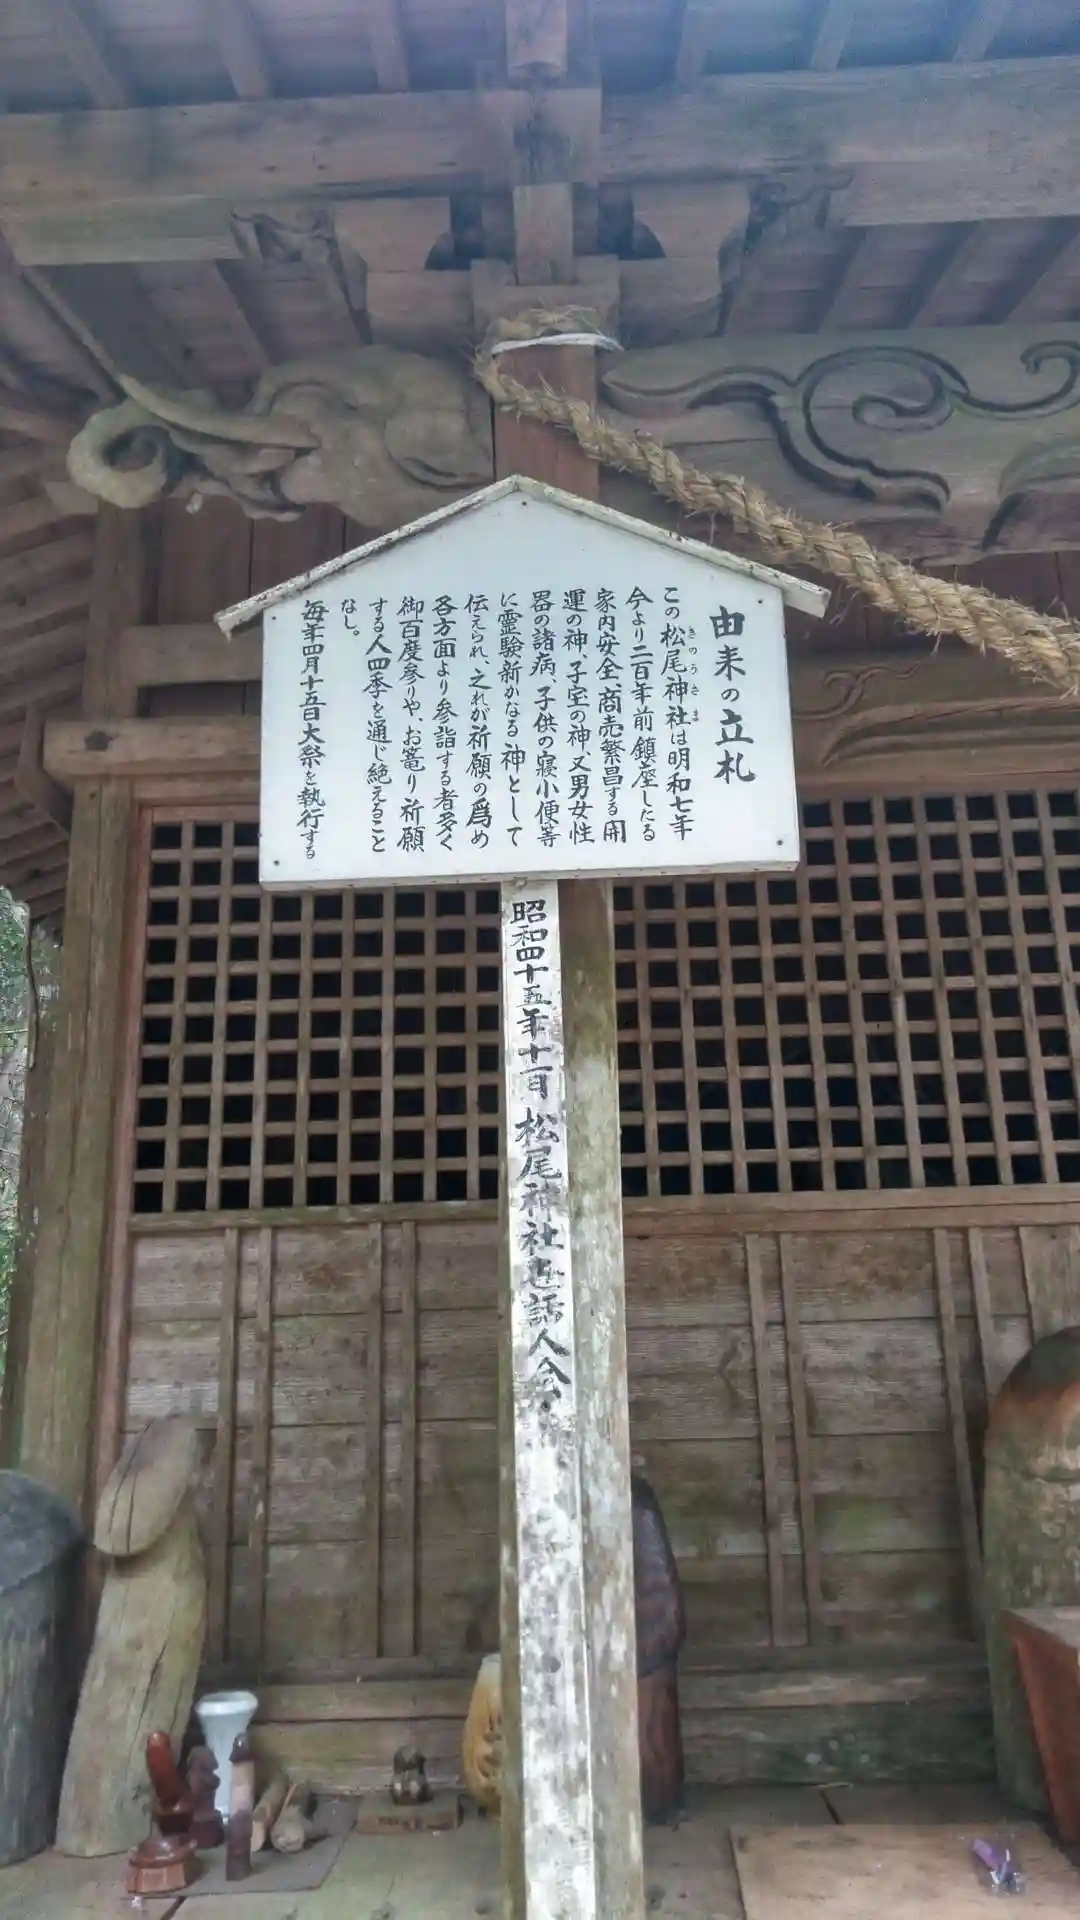 由来の立札
この松尾神社は明和七年
きのうさま
今より二百年前鎮座したる
家内安全、商売繁昌する開
運の神、子宝の神、又男女性
器の諸病、子供の寝小便等
に霊験新かなる神として
伝えられ、之れが祈願の為め
各方面より参詣する者多く
御百度参りや、お篭り祈願
する人四季を通じ絶えること
なし。
毎年四月十五日大祭を執行する
昭和四十五年十一月 松尾神社世話人会